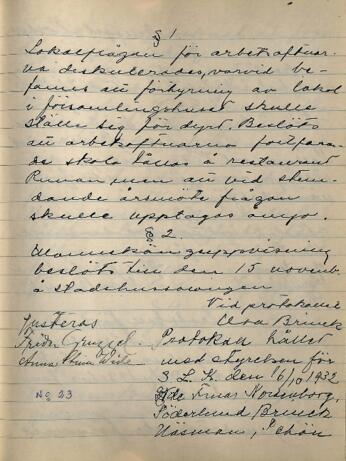 § 1
Lokalfrågan för arbetsaftnar-
na diskuterades, varvid be-
fanns att förhyrning av lokal
i församlingshuset skulle
ställa sig för dyrt. Beslöts
att arbetsaftnarna fortfaran-
de skola hållas å restaurant
Runan, men att vid stun-
dande årsmöte frågan
skulle upptagas ånyo.
§ 2.
Mannekänguppvisning
beslöts till den 15 novemb.
å Stadshussalongen
Vid protokollet
Justeras
Protokoll hållet
med styrelsen för
S. L. K. den 16/10 1932
No 23
Söderlund Brunck
Näsman, Schön